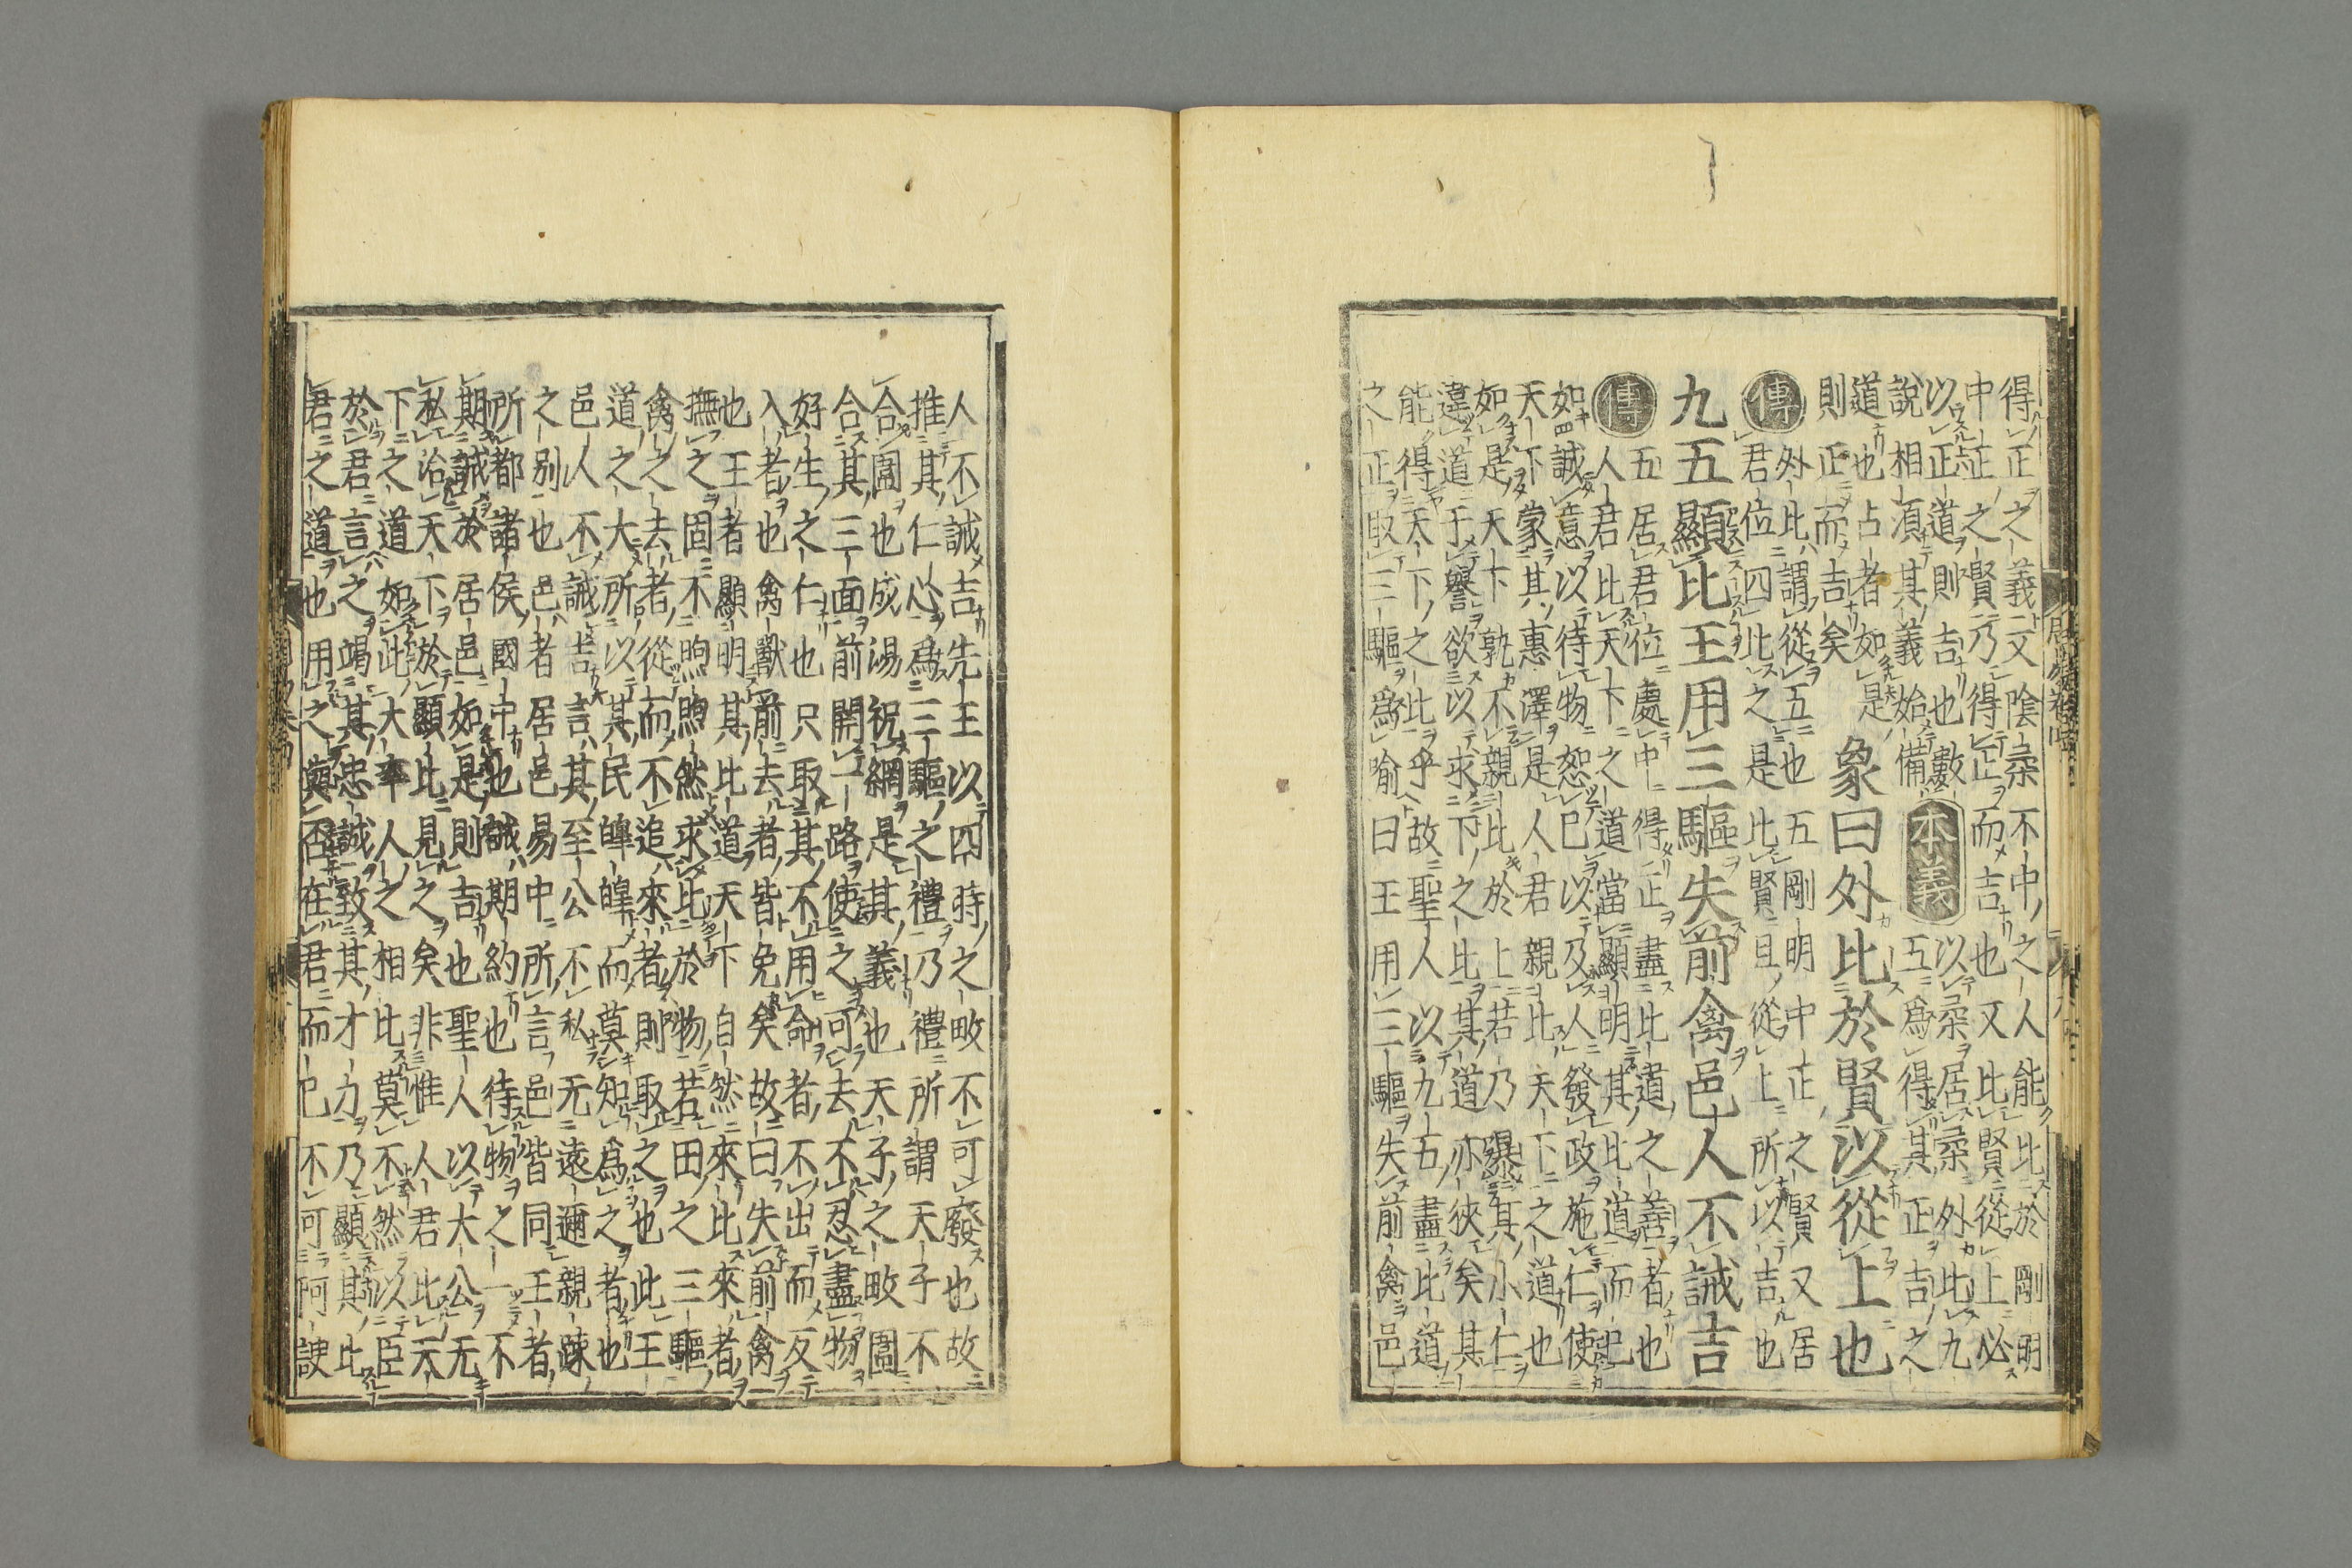 得正之義又陰柔不中之人能比於剛明
中正之賢乃得正而吉也又比賢從上必
以正道則吉也數
說相須其義始備
本義
以柔居柔外比九
五爲得其正吉之
道也占者如是
則正而吉矣
象曰外比於賢以從上也
傳
外比謂從五也五剛明中正之賢又居
君位四比之是比賢且從上所以吉也
九五顯比王用三驅失前禽邑人不誡吉
傳
五居君位處中得正盡比道之善者也
人君比天下之道當顯明其比道而已
如誠意以待物恕己以及人發政施仁使
天下蒙其惠澤是人君親比天下之道也
如是天下孰不親比於上若乃暴其小仁
違道于譽欲以求下之比其道亦狹矣其
能得天下之比乎故聖人以九五盡比道
之正取三驅爲喻曰王用三驅失前禽邑
人不誡吉先王以四時之畋不可廢也故
推其仁心爲三驅之禮乃禮所謂天子不
合圍也成湯祝網是其義也天子之畋圍
合其三面前開一路使之可去不忍盡物
好生之仁也只取其不用命者不出而反
入者也禽獸前去者皆免矣故曰失前禽
也王者顯明其比道天下自然來比來者
撫之固不煦煦然求比於物若田之三驅
禽之去者從而不追來者則取之也此王
道之大所以其民皥皥而莫知爲之者也
邑人不誡吉言其至公不私无遠邇親疎
之別也邑者居邑易中所言邑皆同王者
所都諸侯國中也誡期約也待物之一不
期誡於居邑如是則吉也聖人以大公无
私治天下於顯比見之矣非惟人君比天
下之道如此大率人之相比莫不然以臣
於君言之竭其忠誠致其才力乃顯其比
君之道也用之與否在君而已不可阿諛